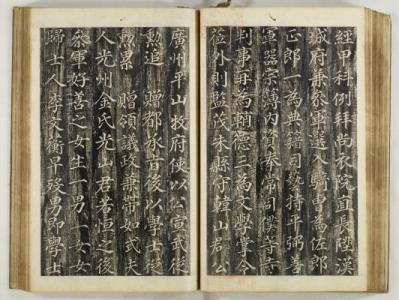 經甲科例拜尚衣院直長陞漢
城府兼參軍選入騎曹為佐郎
正郎一為典籍司藝持平弼善
軍器宗簿內資奉常司僕等寺
判事再為輔德三為文學掌令
蒞外則監茂朱縣守韓山君公
廣州平山牧府使以公宣武從
勳追 贈都承旨後以學士從
勳累 贈領議政兼帶如式夫
人光州金氏光山君若恒之後
參軍好善之女生一男一女女
歸士人李文衡早歿男即學士